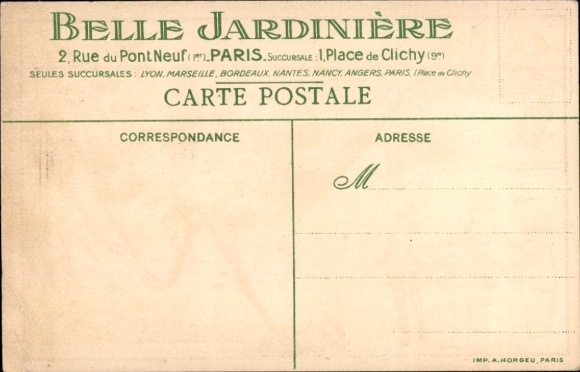 BELLE JARDINIÈRE
2, Rue du Pont Neuf (1er)_PARIS_SUCCURSALE : 1, Place de Clichy (9e)
SEULES SUCCURSALES : LYON, MARSEILLE, BORDEAUX, NANTES, NANCY, ANGERS, PARIS, 1 Place de Clichy
CARTE POSTALE
CORRESPONDANCE
ADRESSE
M
IMP. A. HORGEU, PARIS